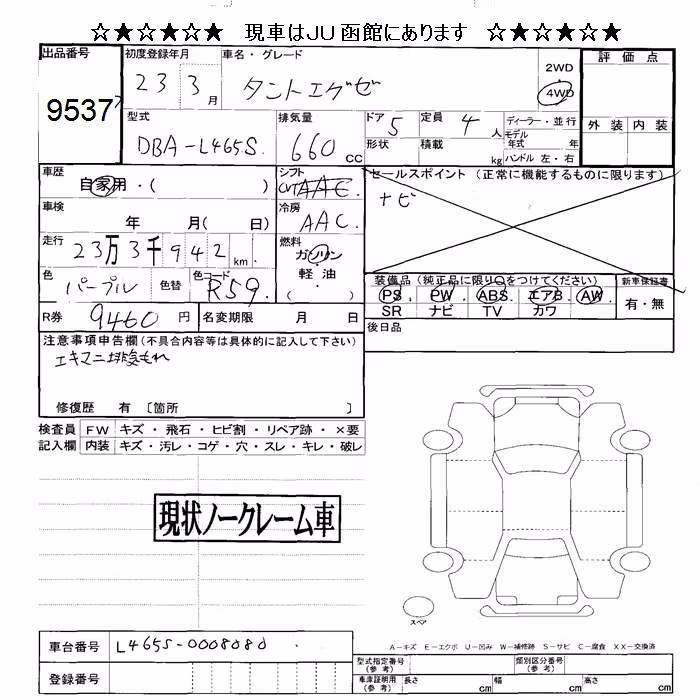 ☆★☆★☆★ 現車はJU函館にあります ☆★☆★☆★
出品番号 初度登録年月 車名・グレード 評価点
23 3月 タントエグゼ 2WD 4WD
9537
型式 排気量 ドア 5 定員 4人 ディーラー・並行 外装 内装
DBA-L465S 660cc 形状 積載 kg モデル年式 年
ハンドル 左・右
車歴 シフト セールスポイント (正常に機能するものに限ります)
自家用・( ) CVT AAC ナビ
車検 年 月( 日) 冷房 AAC
走行 23万3千942km 燃料 ガソリン・軽油・( )
色 パープル 色替 色コード R59 装備品 (純正品に限り○をつけてください) 新車保証書
PS. PW. ABS. エアB. AW 有・無
R券 9460円 名変期限 月 日 SR ナビ TV カワ
後日品
注意事項申告欄 (不具合内容等は具体的に記入して下さい)
エキマニ排気もれ
修復歴 有 〔箇所 〕
検査員 FW キズ・飛石・ヒビ割・リペア跡・×要
記入欄 内装 キズ・汚レ・コゲ・穴・スレ・キレ・破レ
現状ノークレーム車
スペア
車台番号 L465S-0008080
A-キズ E-エクボ U-凹み W-補修跡 S-サビ C-腐食 XX-交換済
登録番号 型式指定番号(参考) 類別区分番号(参考)
車庫証明用(参考) 長さ cm 幅 cm 高さ cm